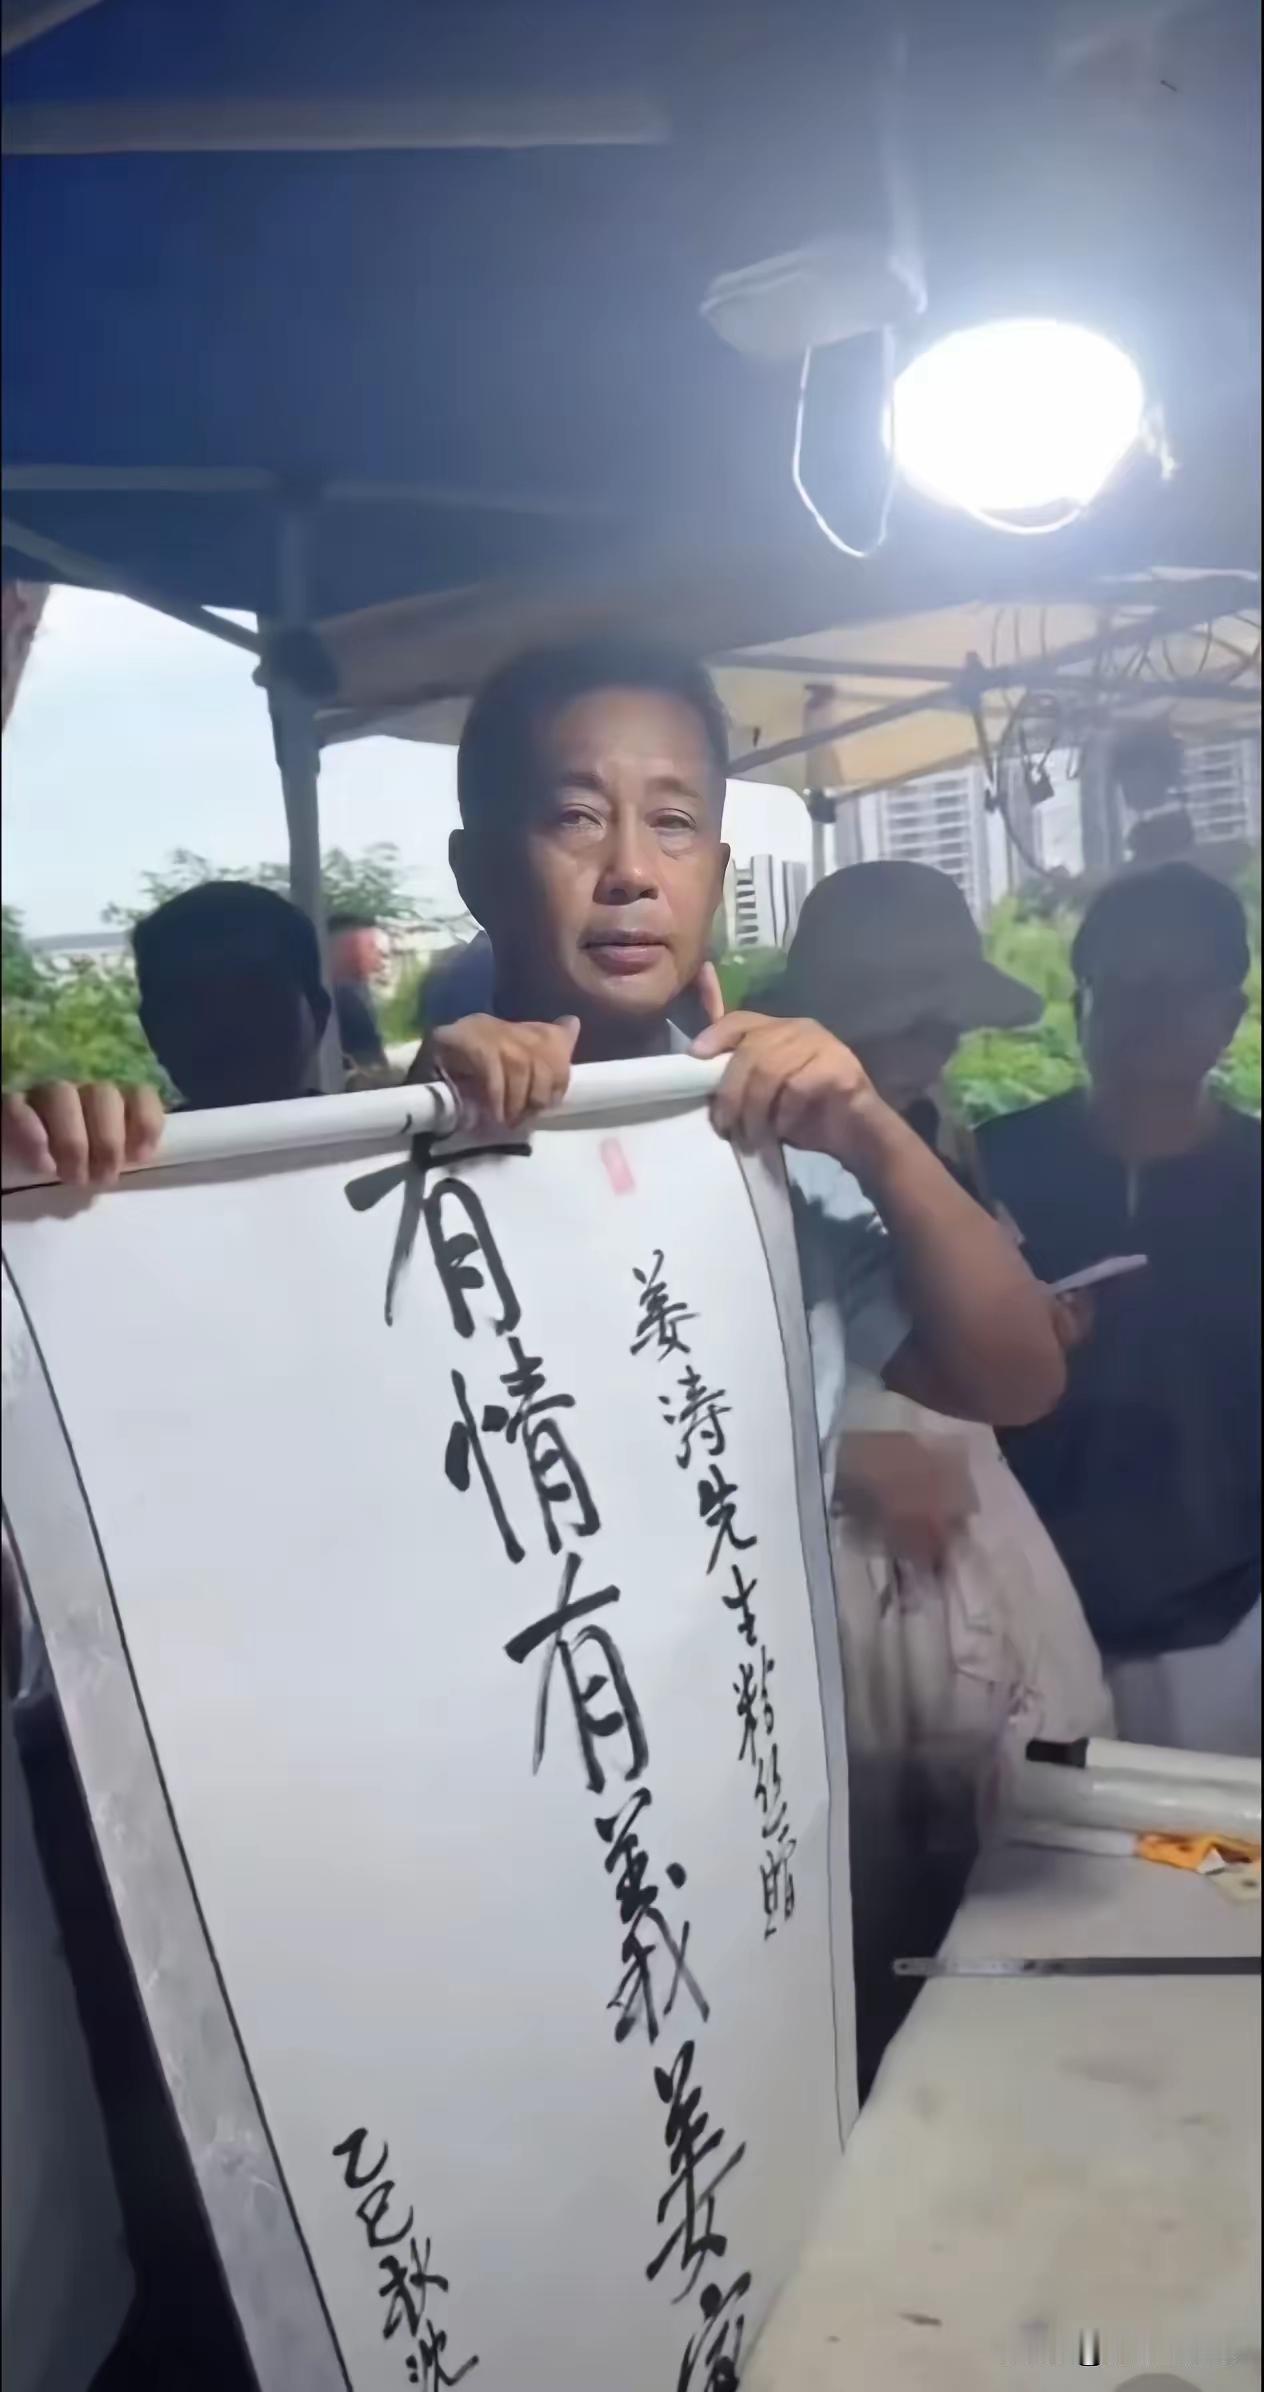 姜涛先生粉丝赠
有情有義姜
乙巳秋沈